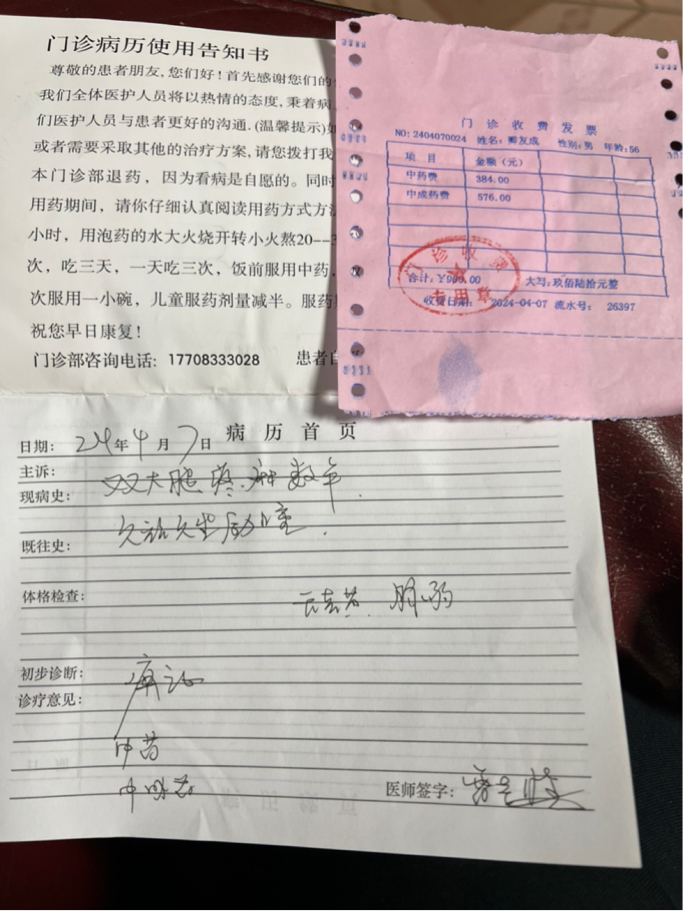 门诊病历使用告知书
尊敬的患者朋友,您们好!首先感谢您们的
我们全体医护人员将以热情的态度,秉着病
们医护人员与患者更好的沟通.(温馨提示)如
或者需要采取其他的治疗方案,请您拨打我
本门诊部退药，因为看病是自愿的。同时
用药期间，请你仔细认真阅读用药方式方法
小时，用泡药的水大火烧开转小火熬20--3
次，吃三天，一天吃三次，饭前服用中药，
次服用一小碗，儿童服药剂量减半。服药
祝您早日康复!
门诊部咨询电话: 17708333028 患者自
门诊收费发票
NO: 2404070024 姓名: 友成 性别: 男 年龄: 56
项目 金额(元)
中药费 384.00
中成药费 576.00
门诊收费
专用章
合计: ¥960.00 大写: 玖佰陆拾元整
收费日期: 2024-04-07 流水号: 26397
病历首页
日期: 24年4月7日
主诉:
现病史: 双大腿疼.麻数年.
久站久坐
既往史:
体格检查: 舌 脉弱
初步诊断: 痹证
诊疗意见:
中药
中成药
医师签字: